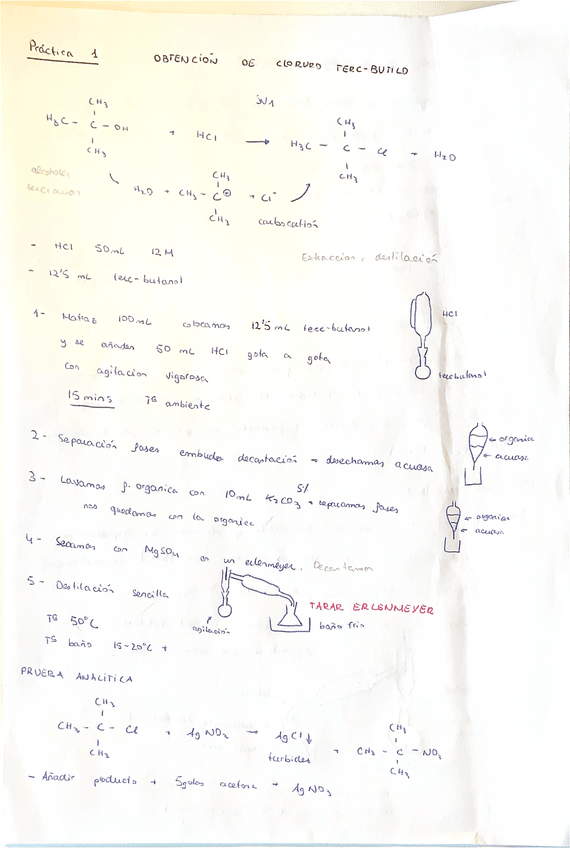 Práctica 1
OBTENCIÓN DE CLORURO TERC-BUTILO
SN1
CH3 CH3
H3C - C - OH + HCl → H3C - C - Cl + H2O
CH3 CH3
alcoholes
terciarios
CH3
H2O + CH3 - C⊕ + Cl-
CH3
carbocatión
- HCl 50mL 12M
Extracción, destilación
- 12'5 mL terc-butanol
1- Matraz 100mL colocamos 12'5 mL terc-butanol
y se añaden 50 mL HCl gota a gota
con agitacion vigorosa
15 mins Tª ambiente
HCl
tercbutanol
2- Separación fases embudo decantación → desechamos acuosa
organica
acuosa
3- Lavamos f. organica con 10mL K2CO3 5% + separamos fases
nos quedamos con la organica
organica
acuosa
4- Secamos con MgSO4 en un erlenmeyer. Decantamos
5- Destilación sencilla
Tª 50°C
Tª baño 15-20°C +
agitación
TARAR ERLENMEYER
baño frio
PRUEBA ANALÍTICA
CH3 CH3
CH3 - C - Cl + AgNO3 → AgCl↓ + CH3 - C - NO3
CH3 turbidez CH3
- Añadir producto + 5gotas acetona + AgNO3